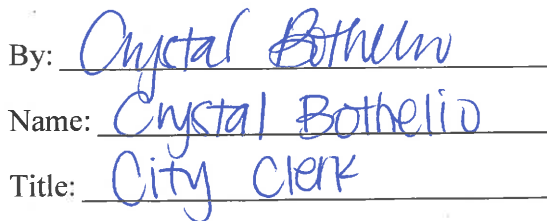 By: Crystal Bothelio
Name: Crystal Bothelio
Title: City Clerk